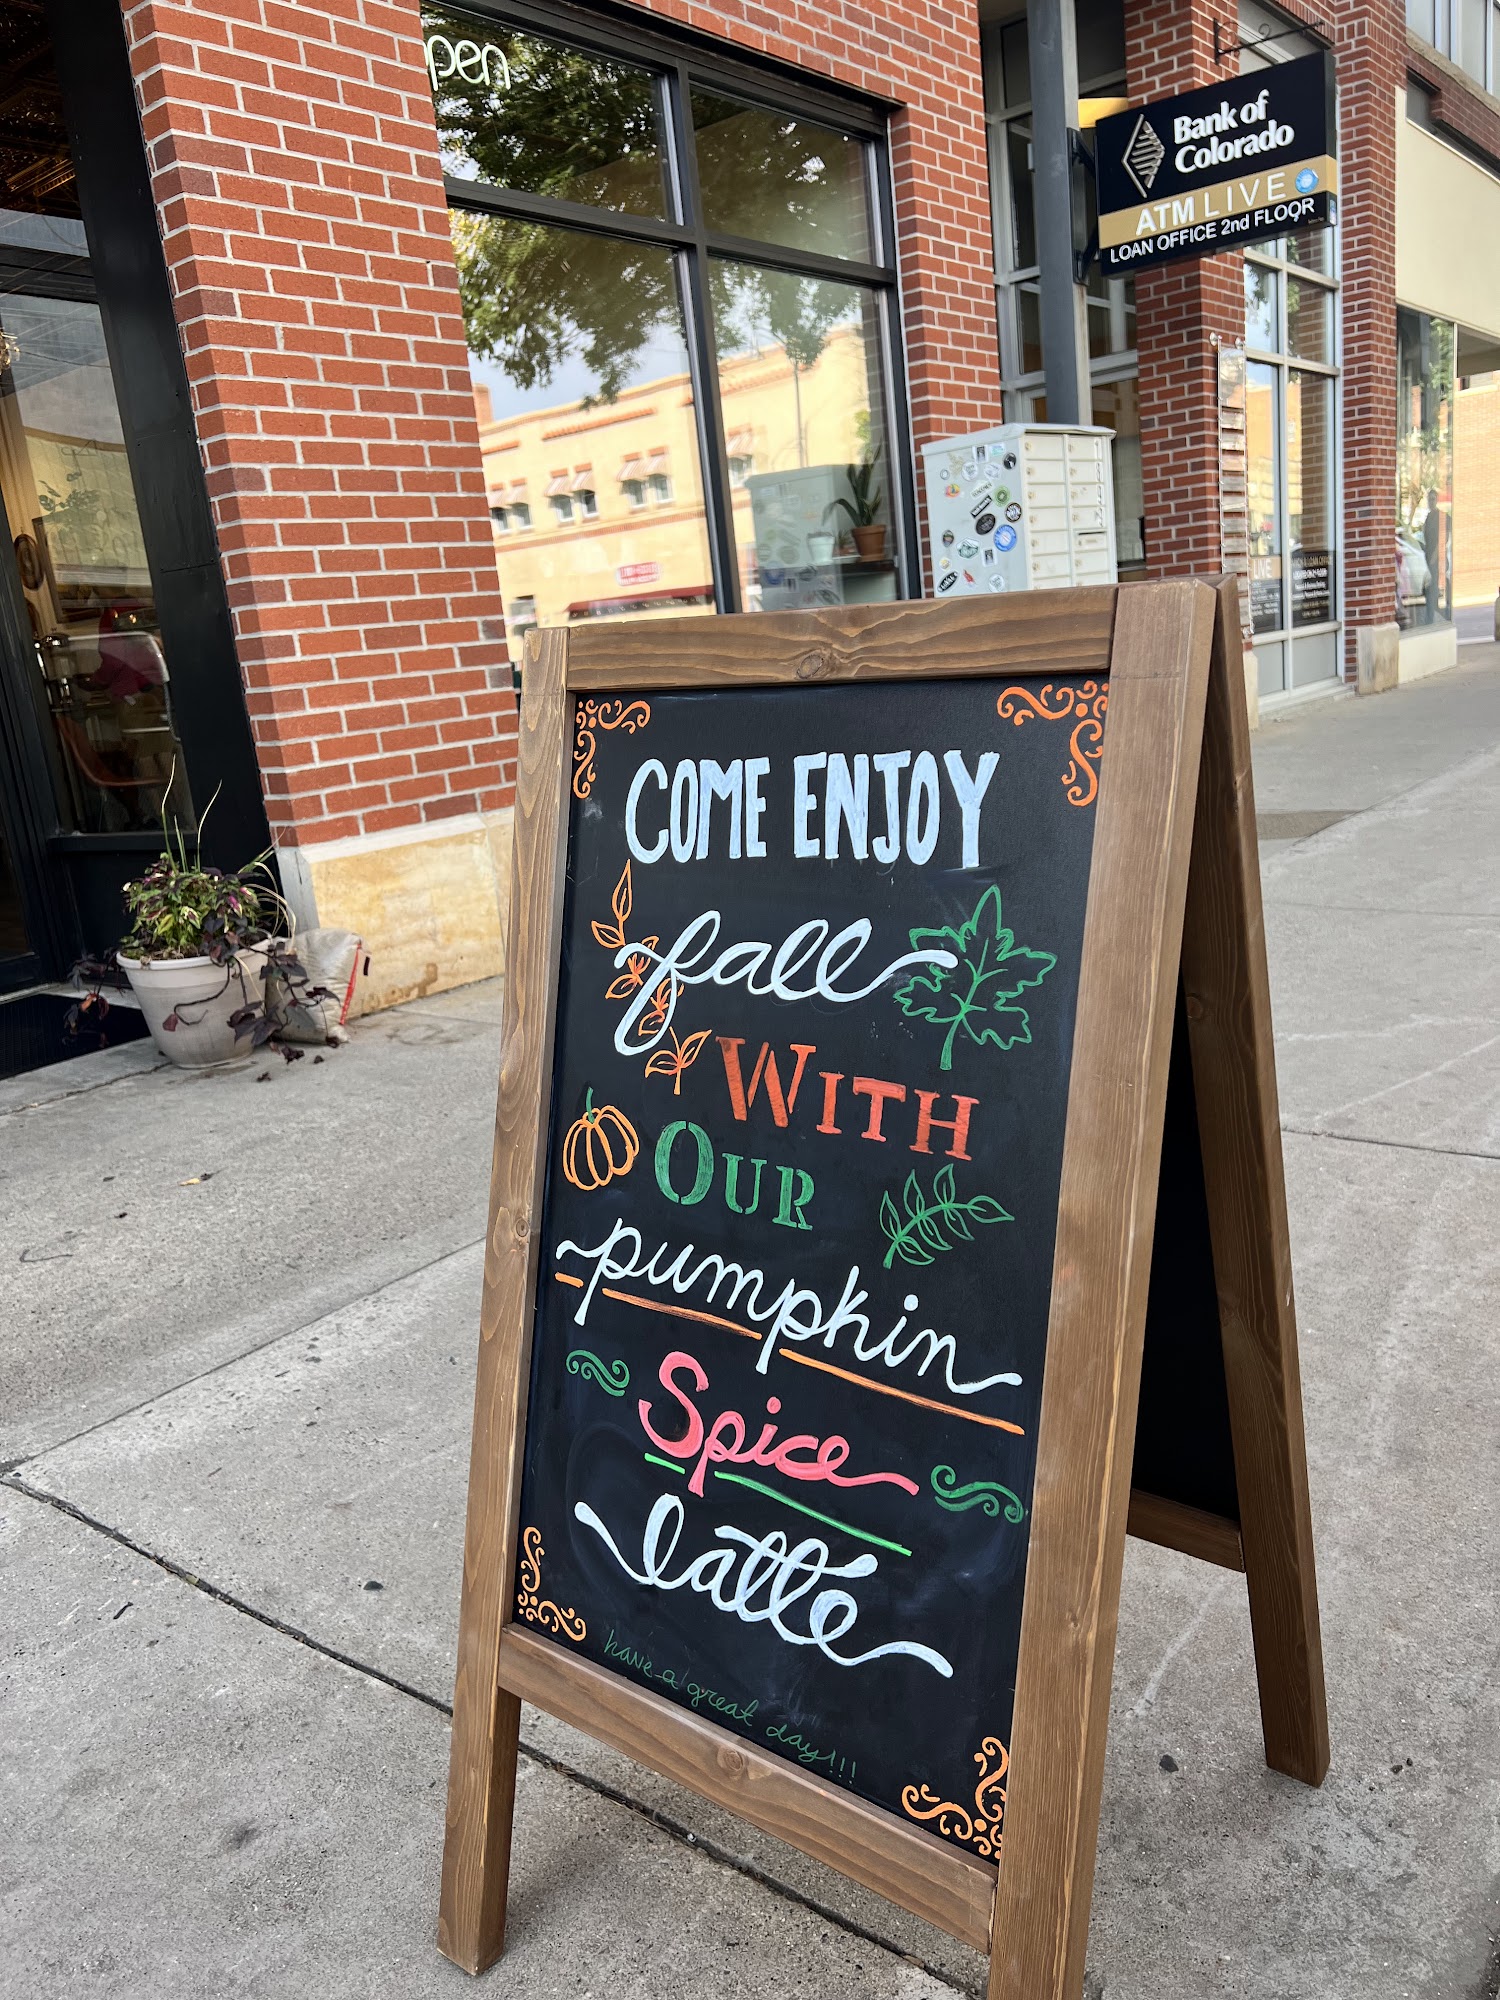 pen
Bank of
Colorado
ATM LIVE
LOAN OFFICE 2nd FLOOR
COME ENJOY
fall
WITH
OUR
pumpkin
Spice
latté
have a great day!!!
LIVE